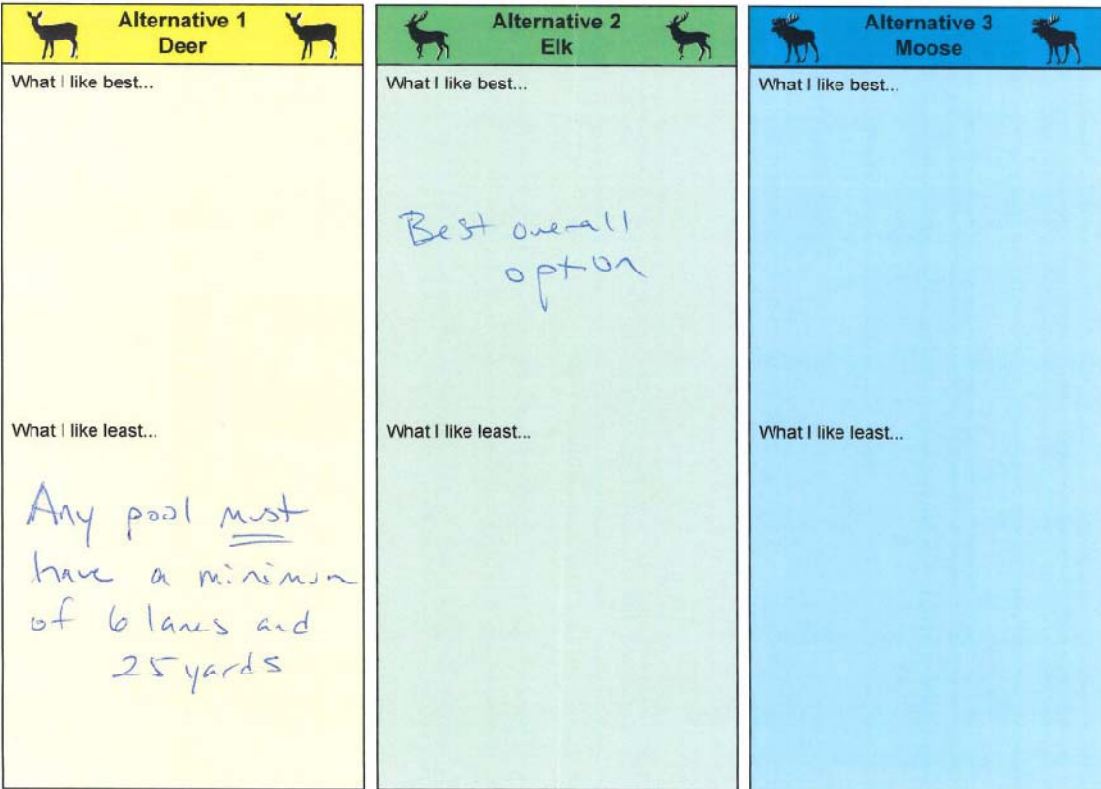 Alternative 1
Deer
What I like best...
What I like least...
Any pool must
have a minimum
of 6 lanes and
25 yards
Alternative 2
Elk
What I like best...
Best overall
option
What I like least...
Alternative 3
Moose
What I like best...
What I like least...